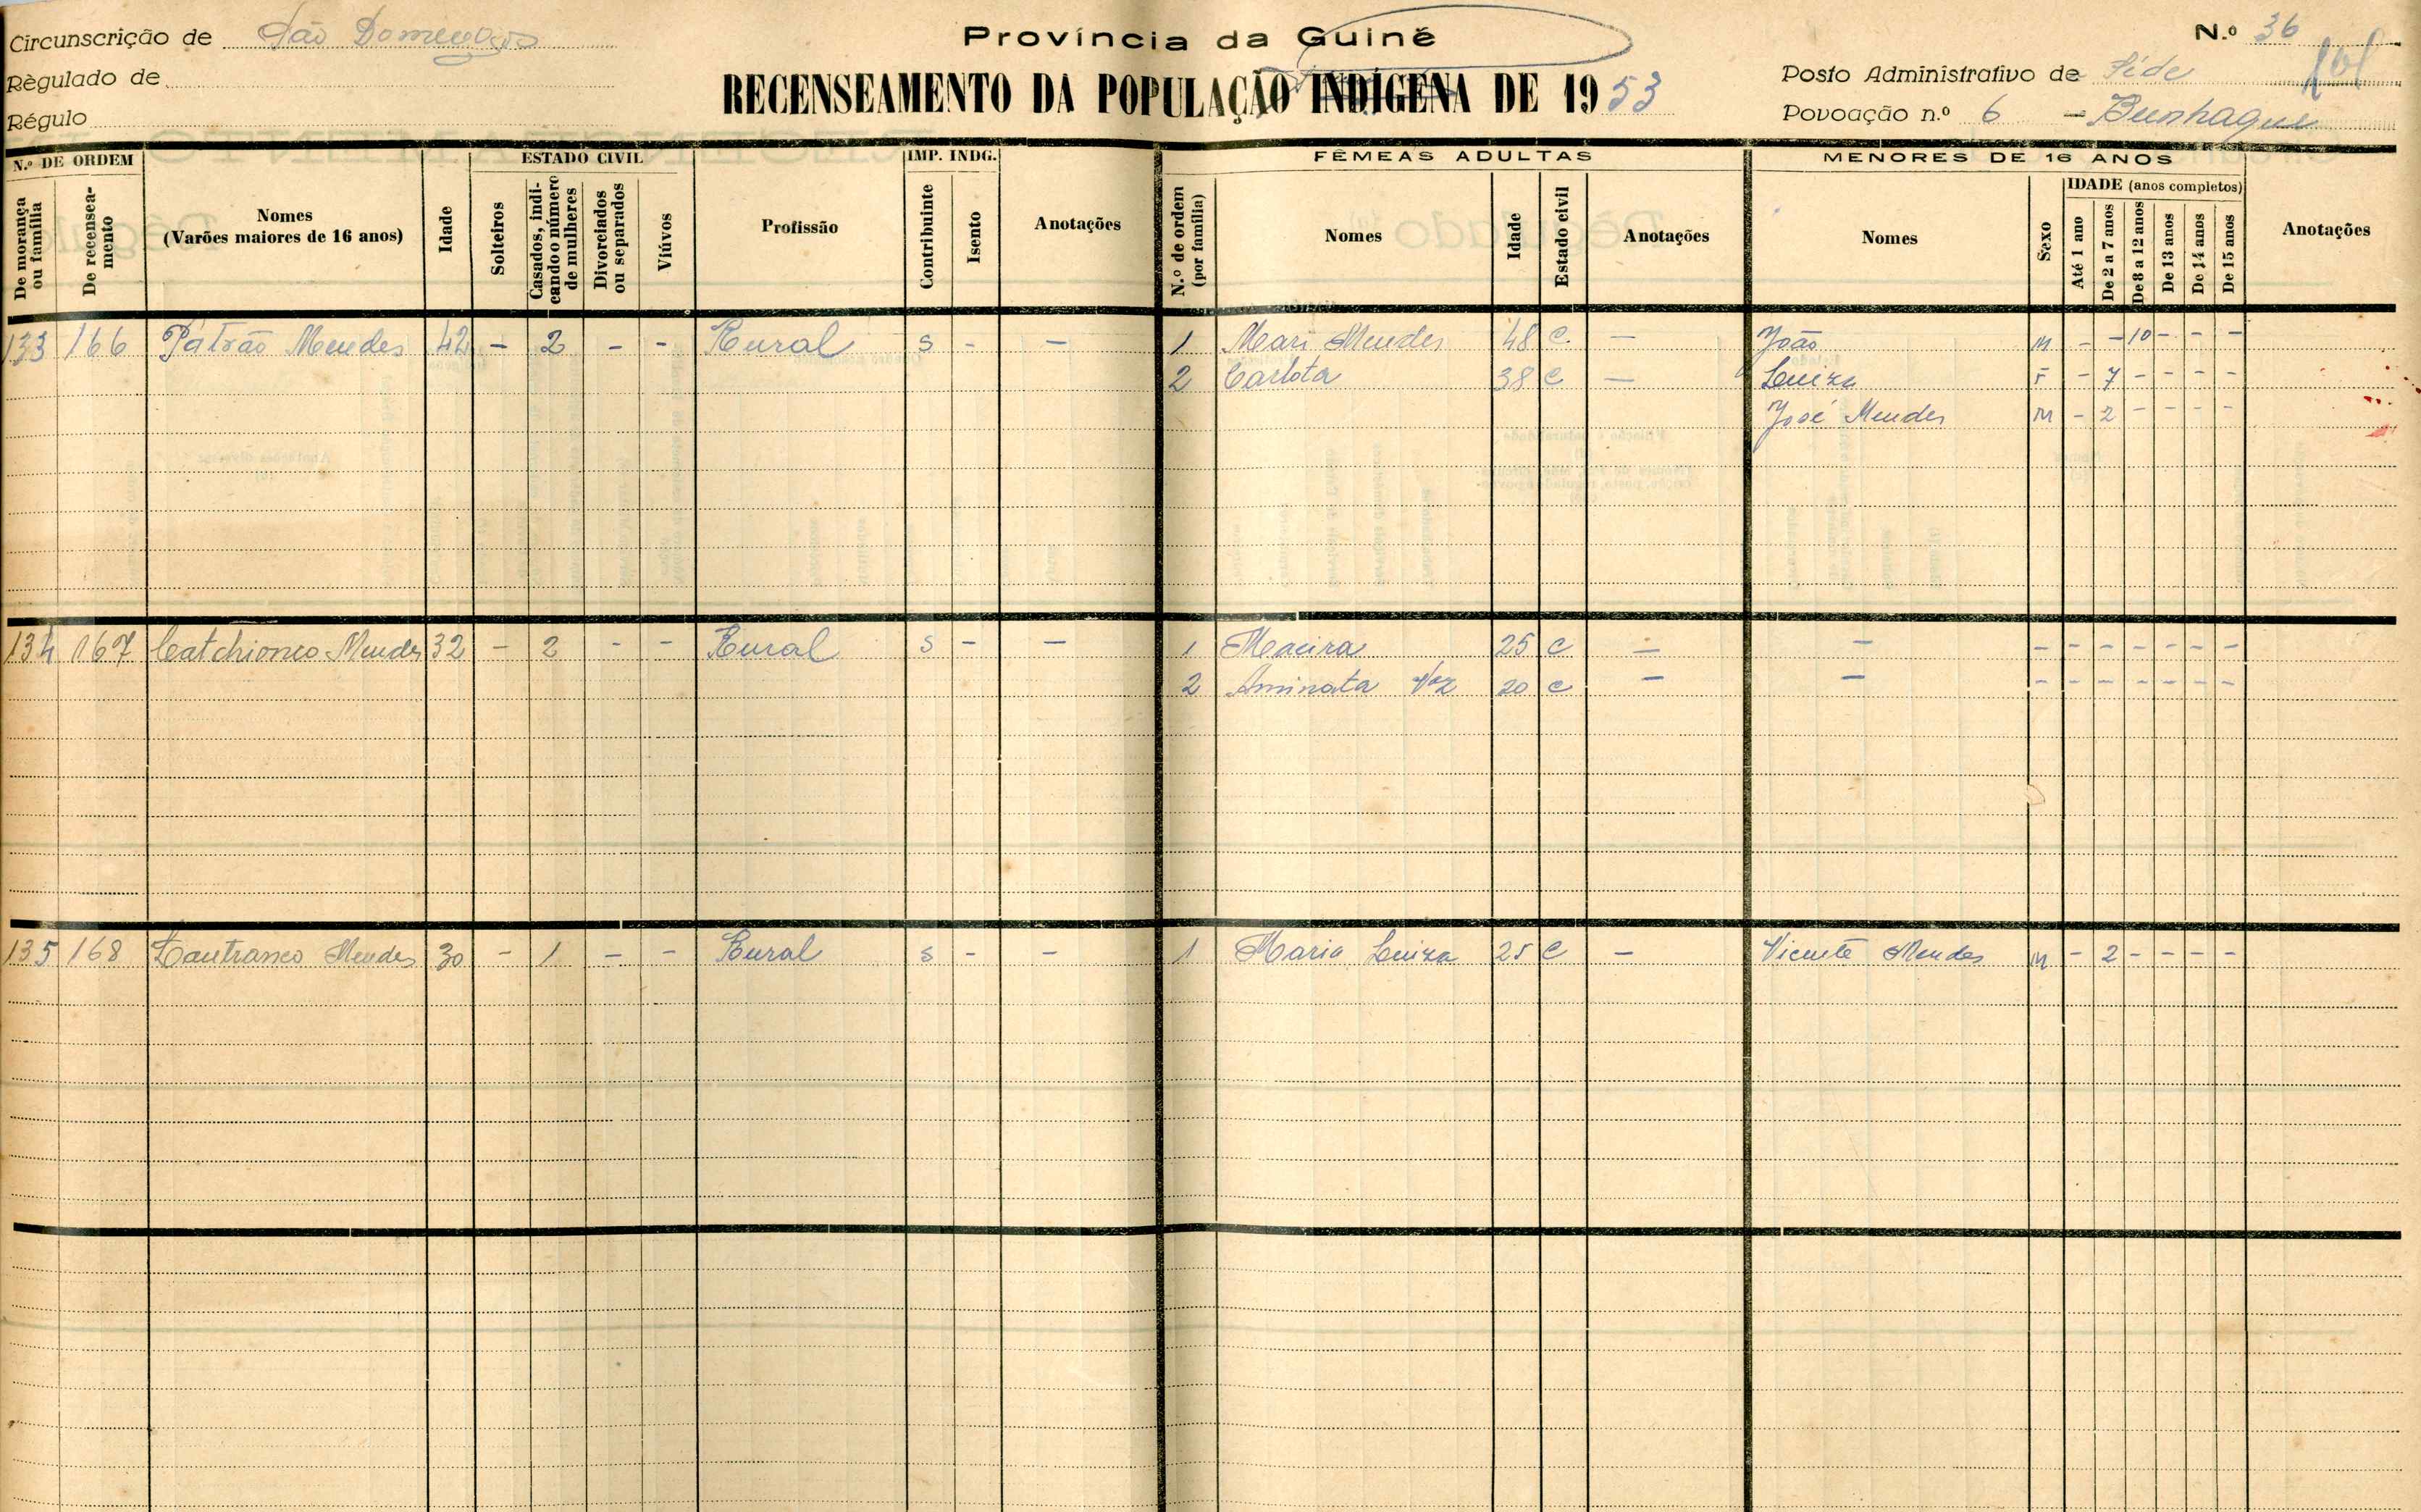 Circunscrição de São Domingos
Règulado de
Régulo
Província da Guiné
RECENSEAMENTO DA POPULAÇÃO INDÍGENA DE 1953
N.º 36
Posto Administrativo de Séde
Povoação n.º 6 - Bunhaque
N.º DE ORDEM
De morança ou família
De recenseamento
Nomes
(Varões maiores de 16 anos)
Idade
ESTADO CIVIL
Solteiros
Casados, indicando o número de mulheres
Divorciados ou separados
Viúvos
Profissão
IMP. INDG.
Contribuinte
Isento
Anotações
FÊMEAS ADULTAS
N.º de ordem (por família)
Nomes
Idade
Estado civil
Anotações
MENORES DE 16 ANOS
Nomes
Sexo
IDADE (anos completos)
Até 1 ano
De 2 a 7 anos
De 8 a 12 anos
De 13 anos
De 14 anos
De 15 anos
Anotações
133 166 Patrão Mendes 42 - 2 - - Rural S - - 1 Mari Mendes 48 C. - João M - - 10 - - -
2 Carlota 38 C - Luiza F - 7 - - - -
José Mendes M - 2 - - - -
134 167 Catchionco Mendes 32 - 2 - - Rural S - - 1 Maeira 25 C - - - - - - - - -
2 Aminata Vaz 20 C - - - - - - - - -
135 168 Mendes 30 - 1 - - Rural S - - 1 Maria Luiza 25 C - Vicente Mendes M - 2 - - - -